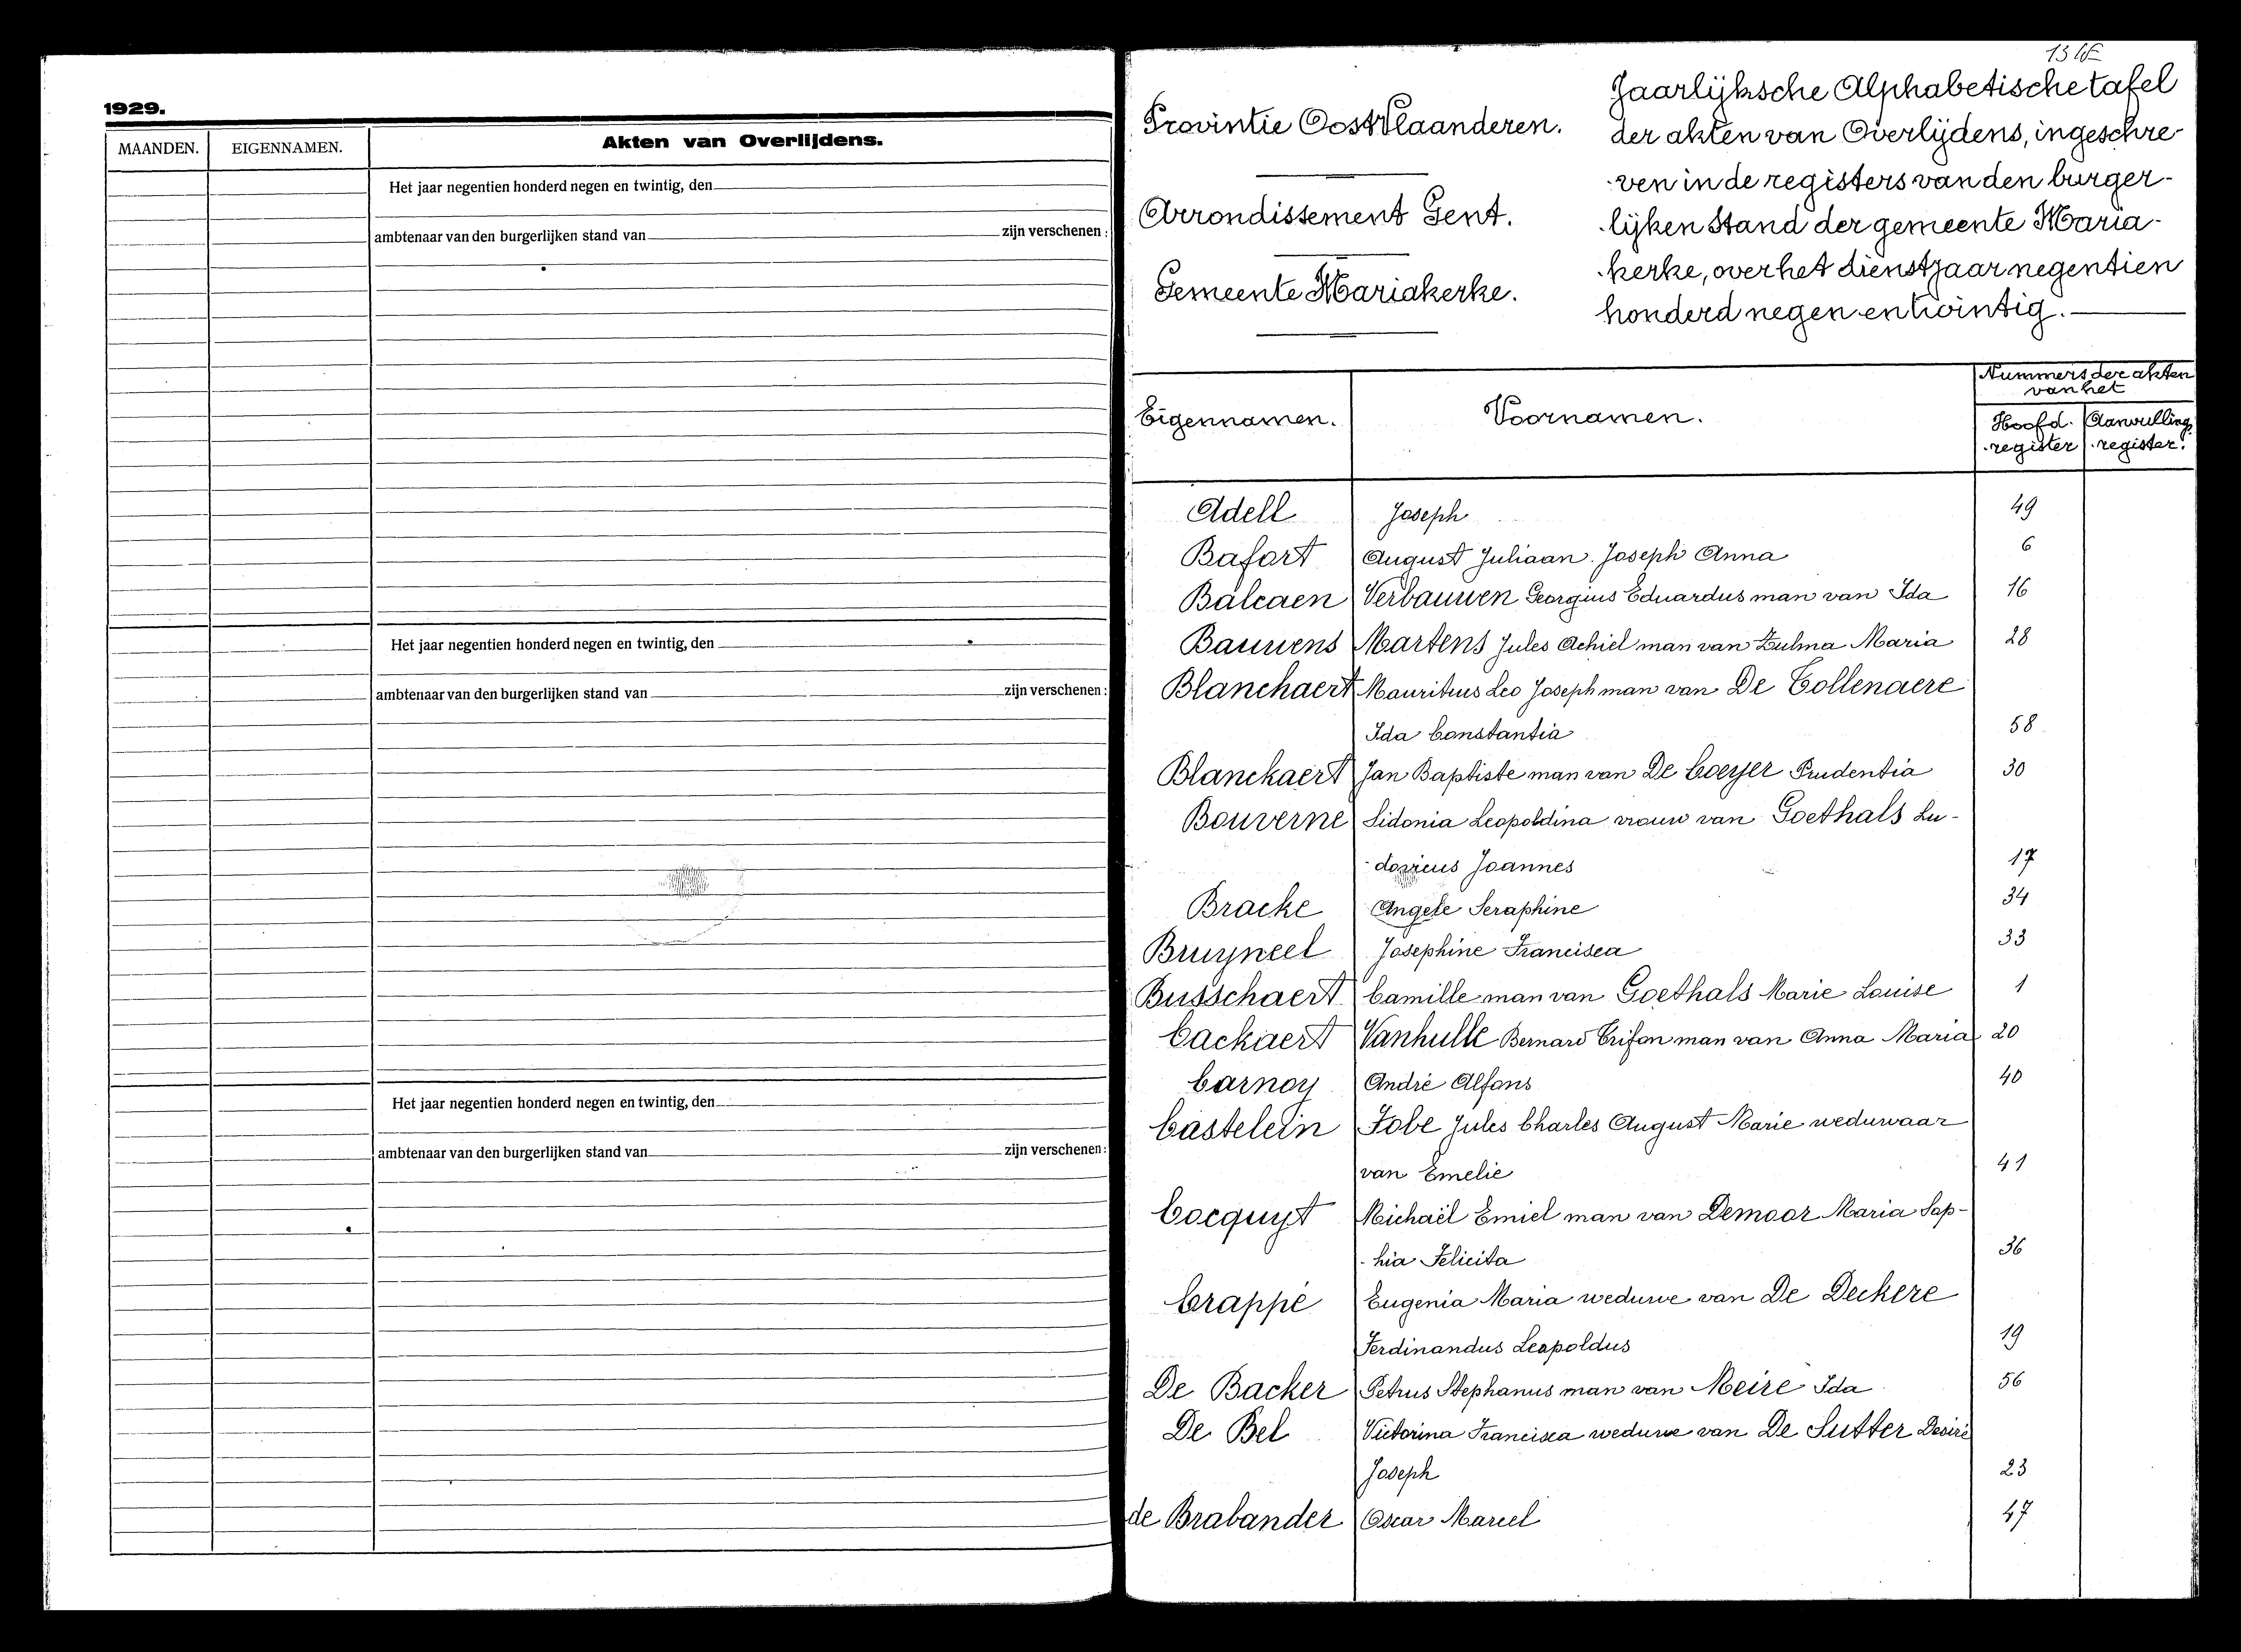 1929.
MAANDEN. EIGENNAMEN. Akten van Overlijdens.
Het jaar negentien honderd negen en twintig, den
ambtenaar van den burgerlijken stand van zijn verschenen:
Het jaar negentien honderd negen en twintig, den
ambtenaar van den burgerlijken stand van zijn verschenen:
Het jaar negentien honderd negen en twintig, den
ambtenaar van den burgerlijken stand van zijn verschenen:
Provintie Oost Vlaanderen.
Arrondissement Gent.
Gemeente Mariakerke.
Jaarlijksche Alphabetische tafel
der akten van Overlijdens, ingeschre-
ven in de registers van den burger-
lijken Stand der gemeente Maria-
kerke, over het dienstjaar negentien
honderd negen en twintig.
Eigennamen. Voornamen. Nummers der akten
van het
Hoofd. Aanvulling
register register.
Adell Joseph 49
Bafort August Juliaan Joseph Anna 6
Balcaen Verbauwen Georgius Eduardus man van Ida 16
Bauwens Martens Jules Achiel man van Zulma Maria 28
Blanchaert Mauritius Leo Joseph man van De Collenaere
Ida Constantia 58
Blanckaert Jan Baptiste man van De Coeyer Prudentia 30
Bouverne Sidonia Leopoldina vrouw van Goethals Lu-
dovicus Joannes 17
Bracke Angele Seraphine 34
Bruyneel Josephine Francisca 33
Busschaert Camille man van Goethals Marie Louise 1
Cackaert Vanhulle Bernard Crifon man van Anna Maria 20
Carnoy André Alfons 40
Castelein Fobe Jules Charles August Marie weduwaar
van Emelie 41
Cocquyt Michaël Emiel man van Demoor Maria Sop-
hia Felicita 36
Crappé Eugenia Maria weduwe van De Deckere
Ferdinandus Leopoldus 19
De Backer Petrus Stephanus man van Meire Ida 56
De Bel Victorina Francisca weduwe van De Sutter Desiré
Joseph 23
de Brabander Oscar Marcel 47